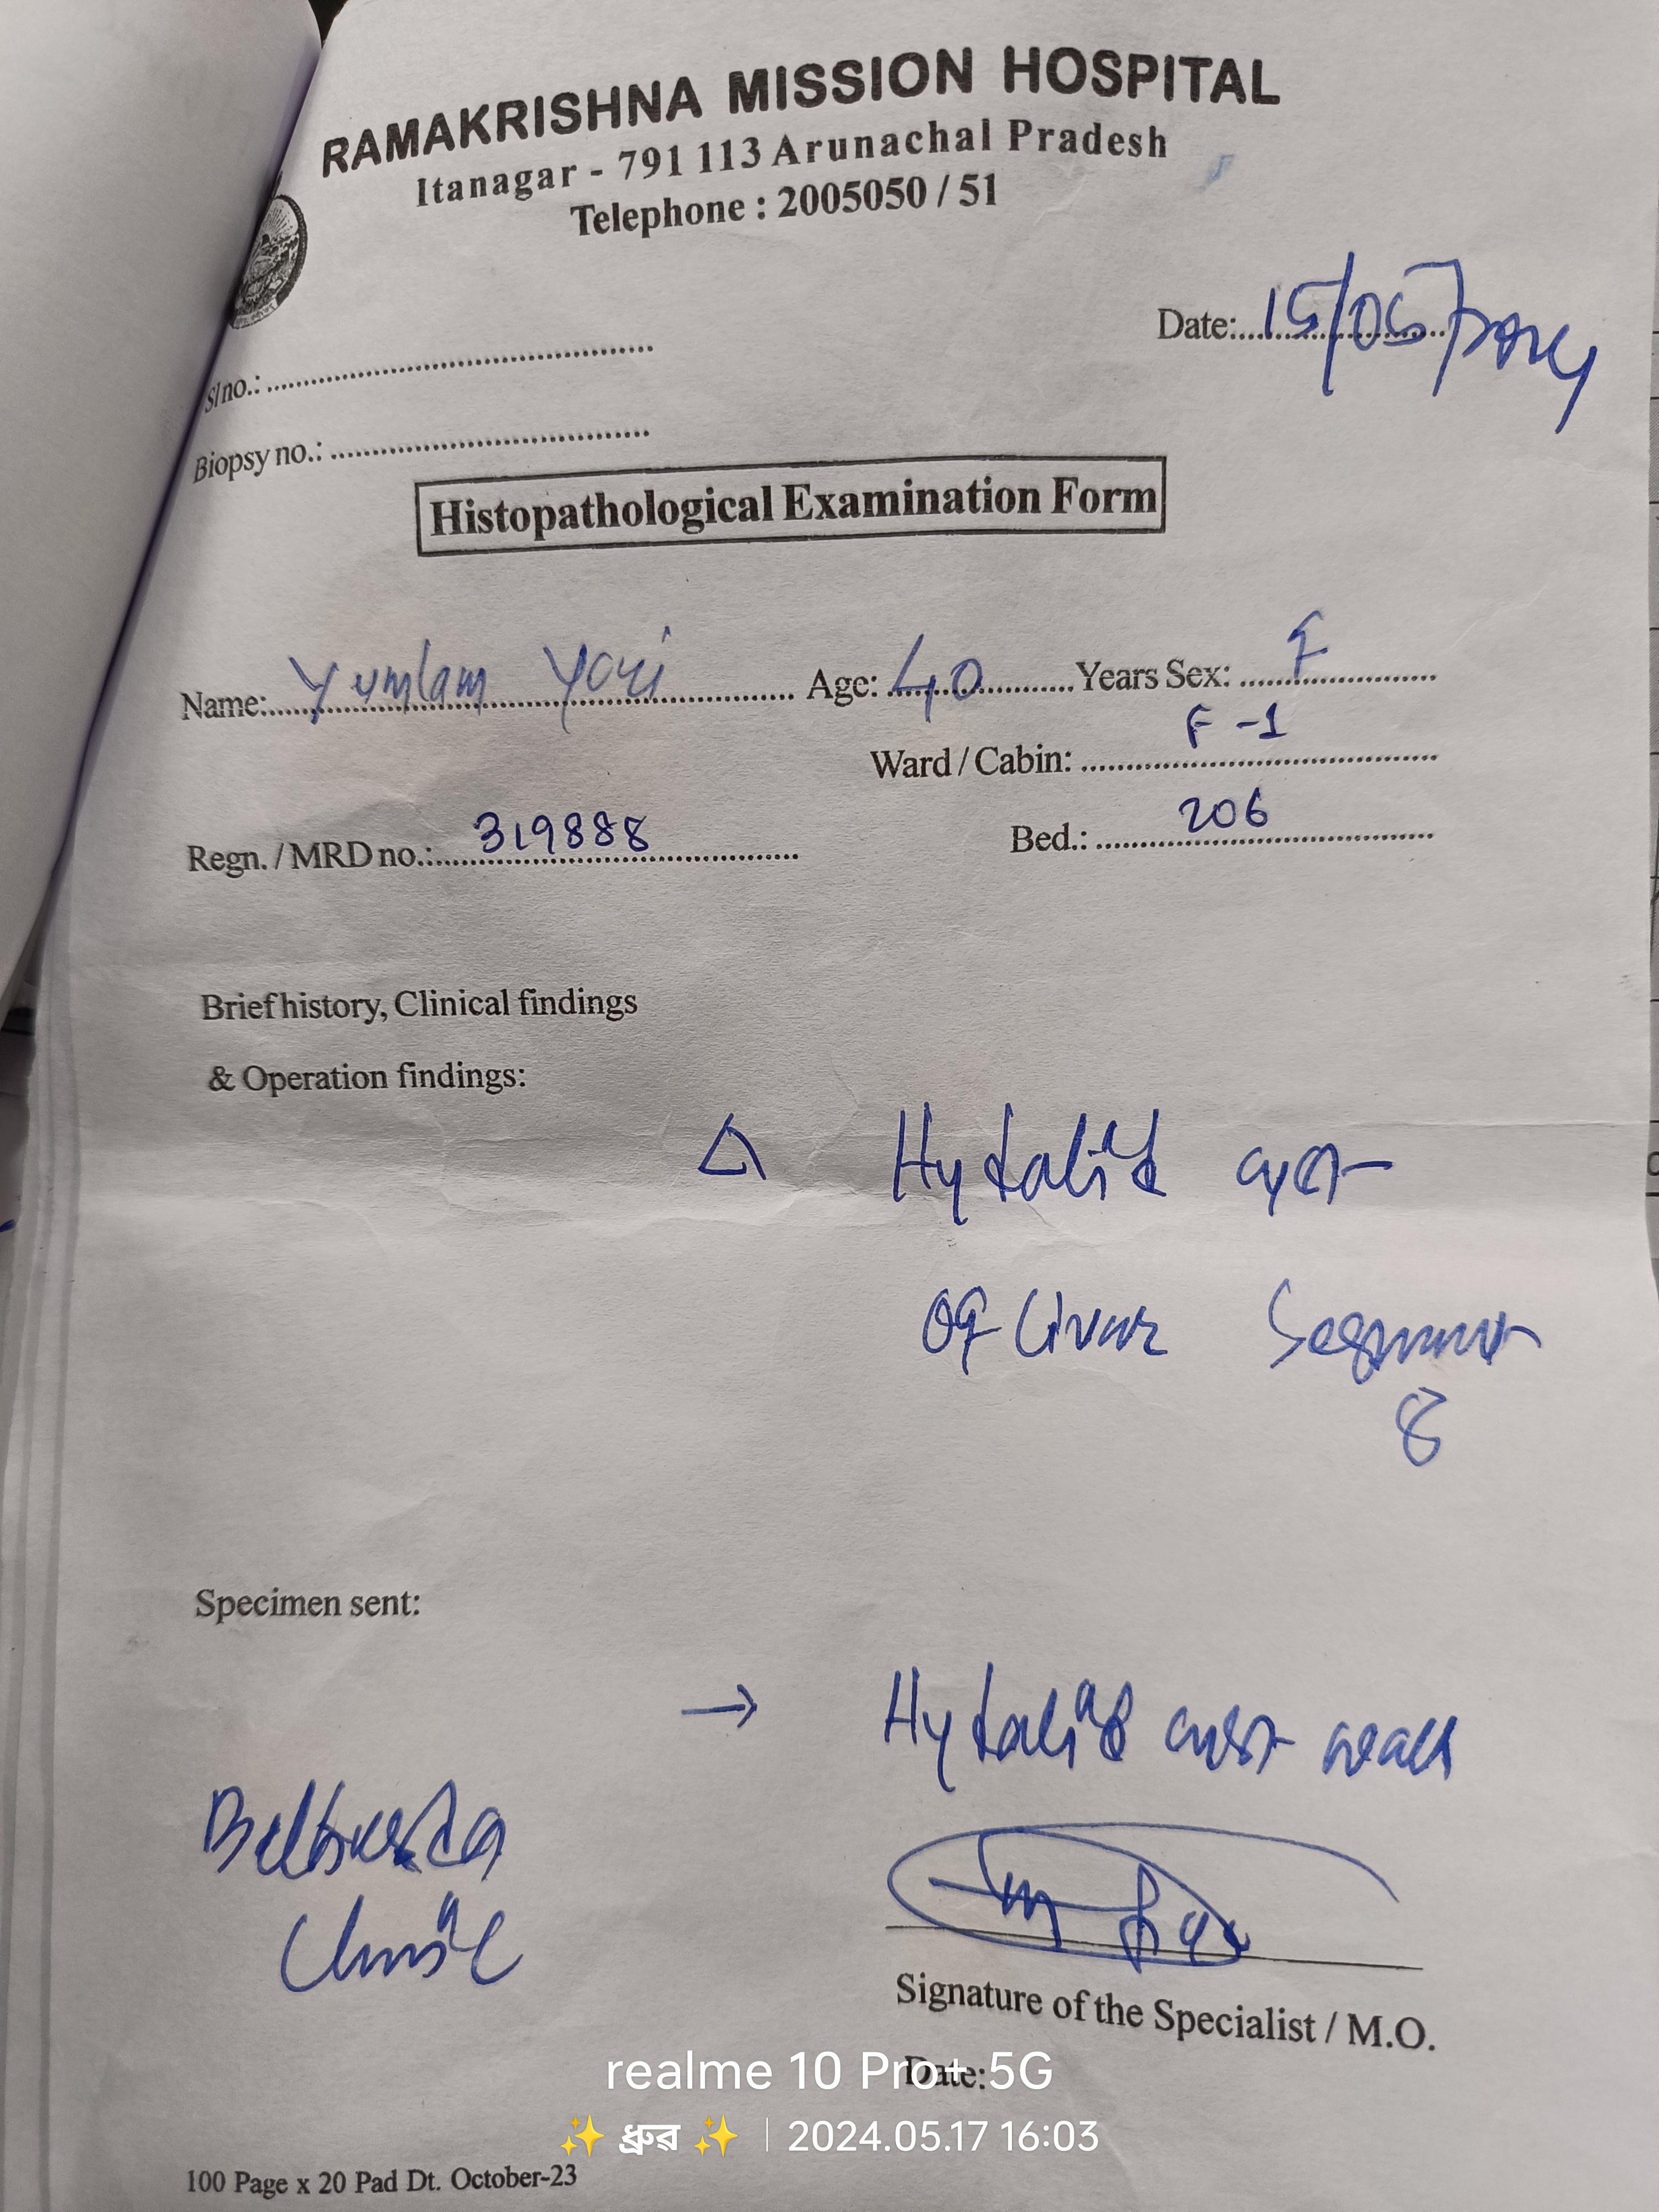 RAMAKRISHNA MISSION HOSPITAL
Itanagar - 791 113 Arunachal Pradesh
Telephone : 2005050 / 51
Date: 15/05/2024
Sl no.:
Biopsy no.:
Histopathological Examination Form
Name: Yumlam Yari Age: 40 Years Sex: F
Ward / Cabin: F -1
Regn. / MRD no.: 319888 Bed.: 206
Brief history, Clinical findings
& Operation findings:
Δ Hydatid cyst
of liver Segment
8
Specimen sent:
→ Hydatid cyst wall
Clinic
Signature of the Specialist / M.O.
Date:
realme 10 Pro+ 5G
✨ ধ্ৰুৱ ✨ | 2024.05.17 16:03
100 Page x 20 Pad Dt. October-23